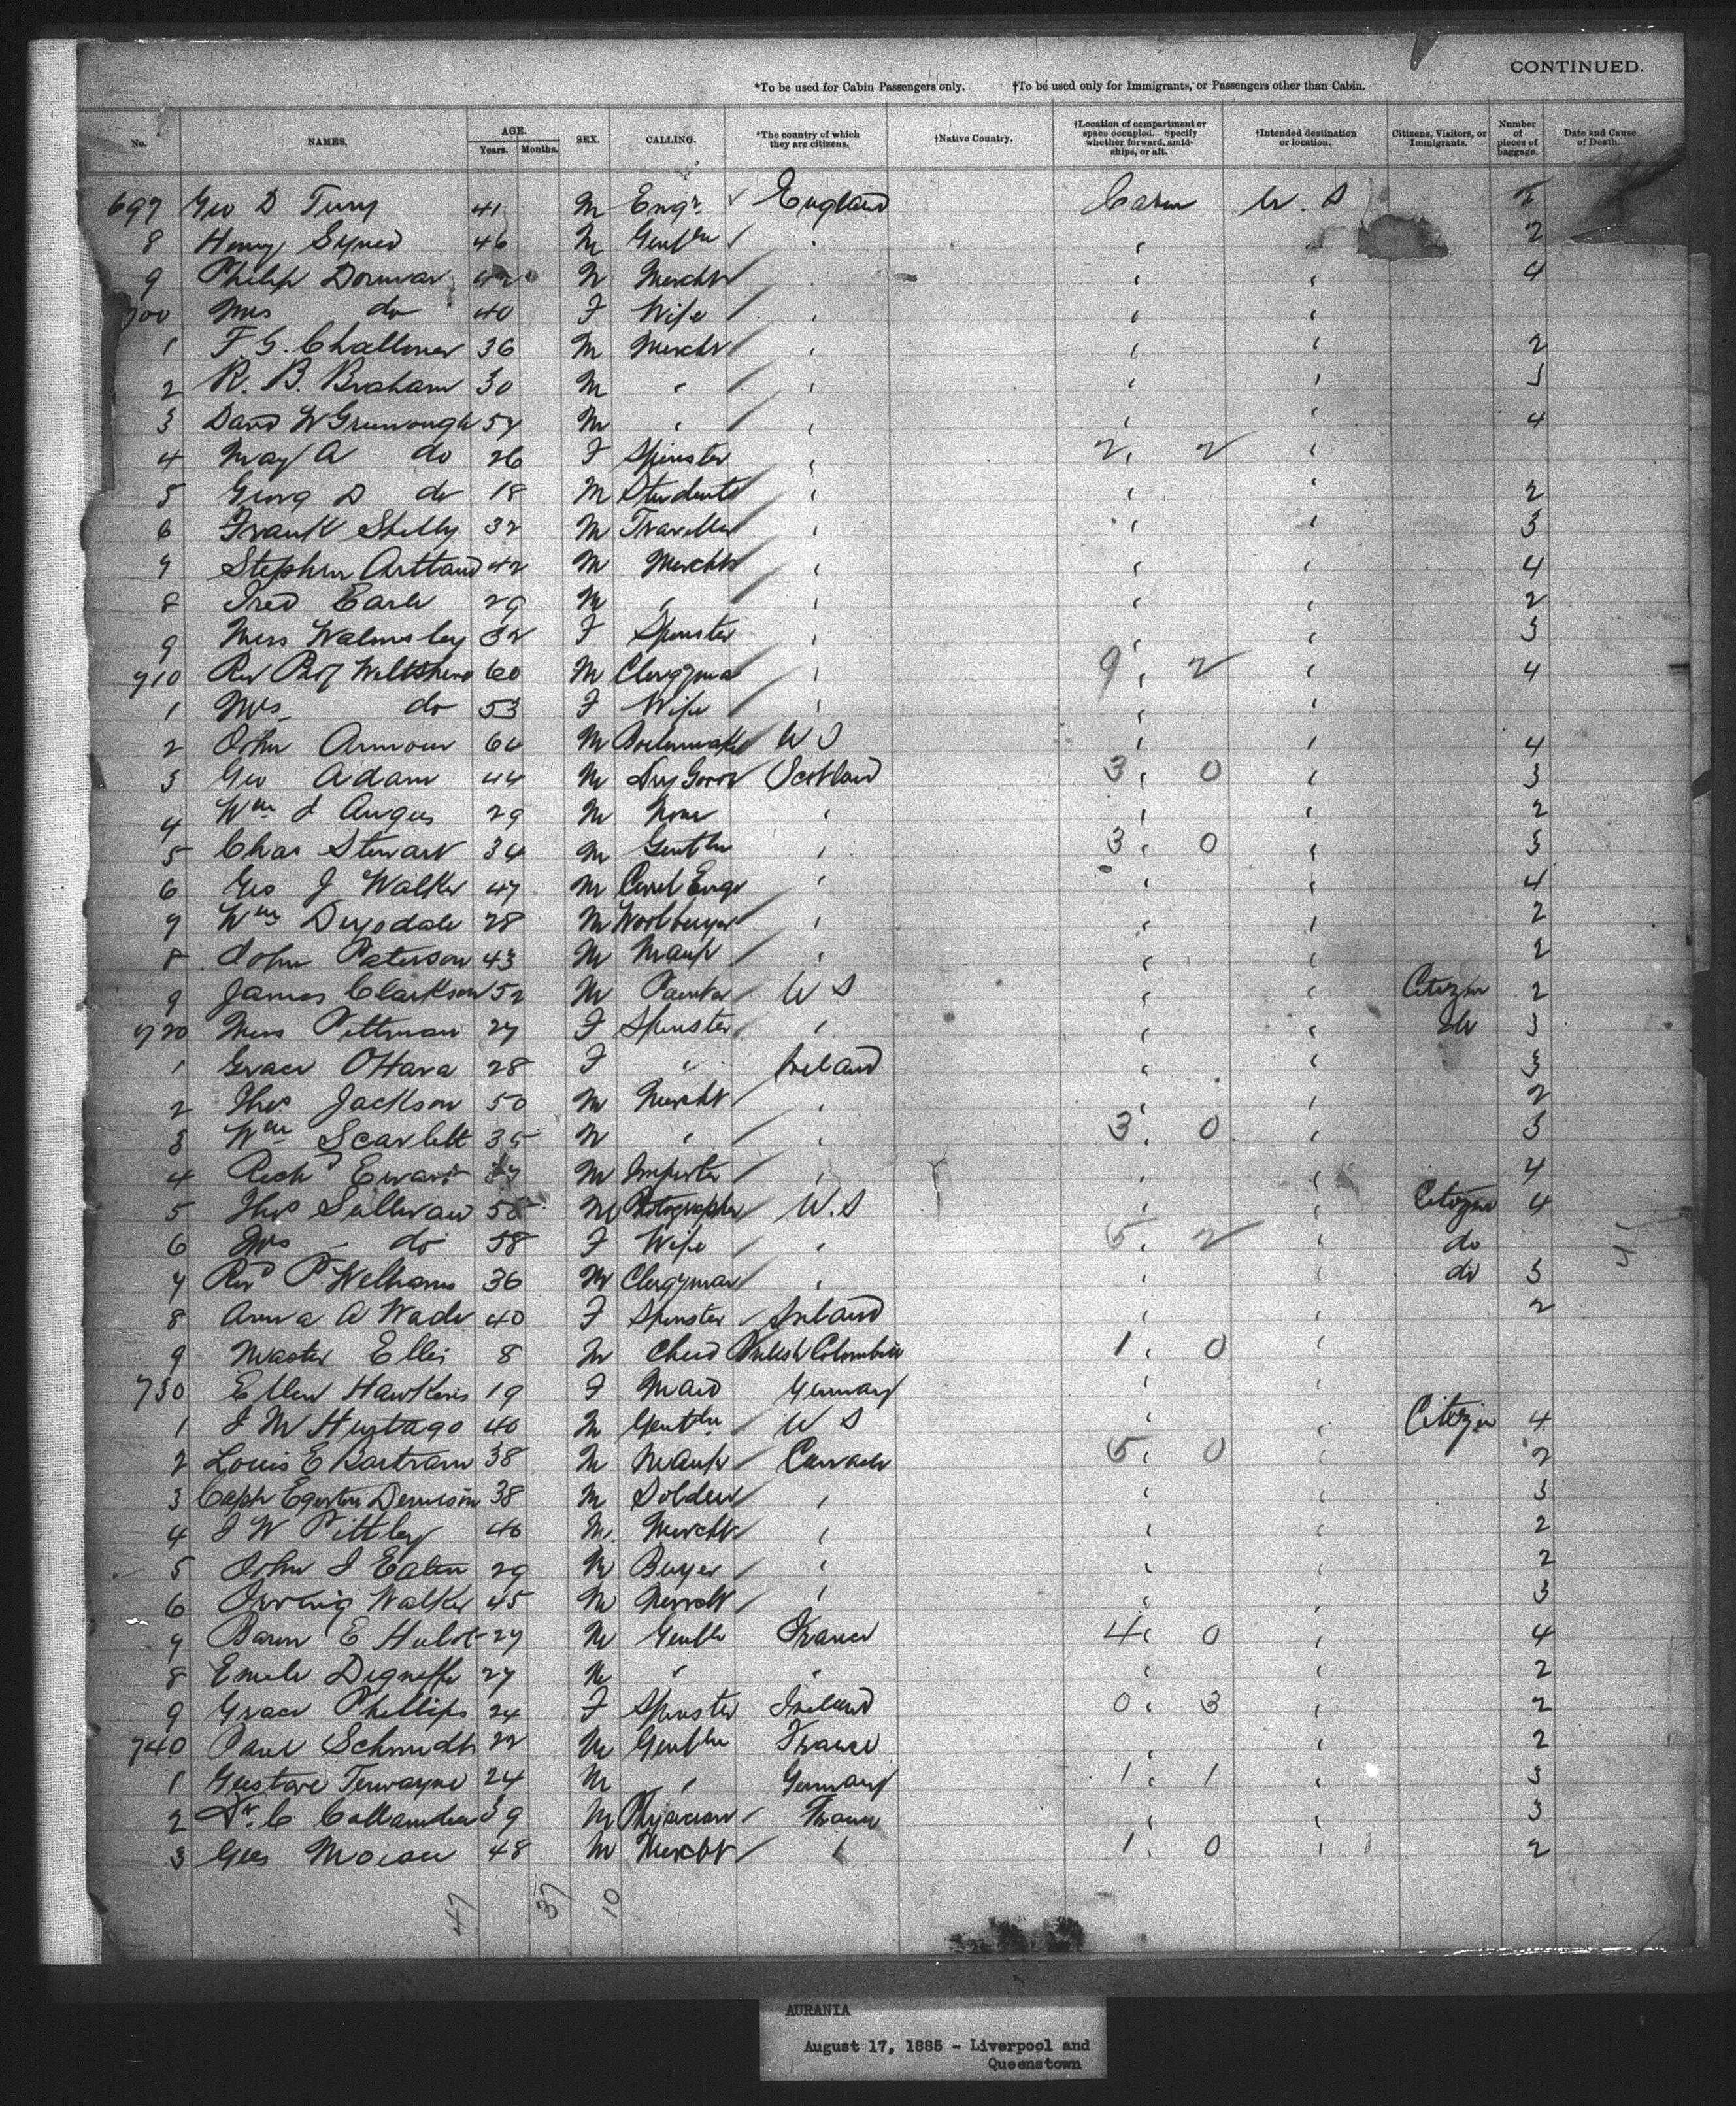 CONTINUED.
*To be used for Cabin Passengers only. †To be used only for Immigrants, or Passengers other than Cabin.
No. NAMES. AGE. Years. Months. SEX. CALLING. *The country of which they are citizens. †Native Country. †Location of compartment or space occupied. Specify whether forward, amidships, or aft. †Intended destination or location. Citizens, Visitors, or Immigrants. Number of pieces of baggage. Date and Cause of Death.
697 Geo D 41 M Engr. England Cabin U.S
8 Henry 46 M Gentln 2
9 Philip Dormar 42 M Mercht 4
700 Mrs do 40 F Wife
1 F.G. Challoner 36 M Mercht 2
2 R. B. Braham 30 M 3
3 David W Greenough 54 M 4
4 May A do 26 F Spinster 2 2
5 Georg D do 18 M Student 2
6 Frank Shelly 32 M Traveller 3
7 Stephen 42 M Mercht 4
8 Fred Earle 29 M 2
9 Miss Walmsley 32 F Spinster 3
710 Rev 60 M Clergyma 9 2 4
1 Mrs do 53 F Wife
2 John Armour 64 M Boilermaker U S 4
3 Geo Adam 44 M Dry Goods Scotland 3 0 3
4 Wm J Angus 29 M None 2
5 Chas Stewart 34 M Gentln 3 0 3
6 Geo J Walker 47 M Civil Engr 4
7 Wm Drysdale 28 M Woolbuyer 2
8 John Paterson 43 M Manfr 2
9 James Clarkson 52 M Painter U S Citizen 2
720 Miss Pittman 27 F Spinster do 3
1 Grace OHara 28 F Ireland 3
2 Thos Jackson 50 M Mercht 2
3 Wm Scarlett 35 M 3 0 3
4 Richd Ewart M Importer 4
5 Thos Sullivan M Photographer U.S Citizen 4
6 Mrs do 58 F Wife 5 2 do
7 Revd P Welhams 36 M Clergyman do 3
8 Anna A Wade 40 F Spinster Ireland 2
9 Master Ellis 8 M Child British Colombia 1 0
730 Ellen Hawkens 19 F Maid Germany
1 J M 40 M Gentln U S Citizen 4
2 Louis E Bartram 38 M Manfr Canada 5 0 2
3 Capt Egerton Dennison 38 M Soldier 3
4 J W Pittley 40 M. Mercht 2
5 John J Eaton 29 M Buyer 2
6 Irving Walker 45 M Mercht 3
7 Baron E Hulot 27 M Gentln France 4 0 4
8 Emile Digneffe 27 M 2
9 Grace Phillips 24 F Spinster Ireland 0 3 2
740 Paul Schmidt 22 M Gentln France 2
1 Gustave Terwayne 24 M Germany 1 1 3
2 Dr. C Callamdea 39 M Physician France 3
3 48 M Mercht 1 0 2
47 37 10
AURANIA
August 17, 1885 - Liverpool and
Queenstown